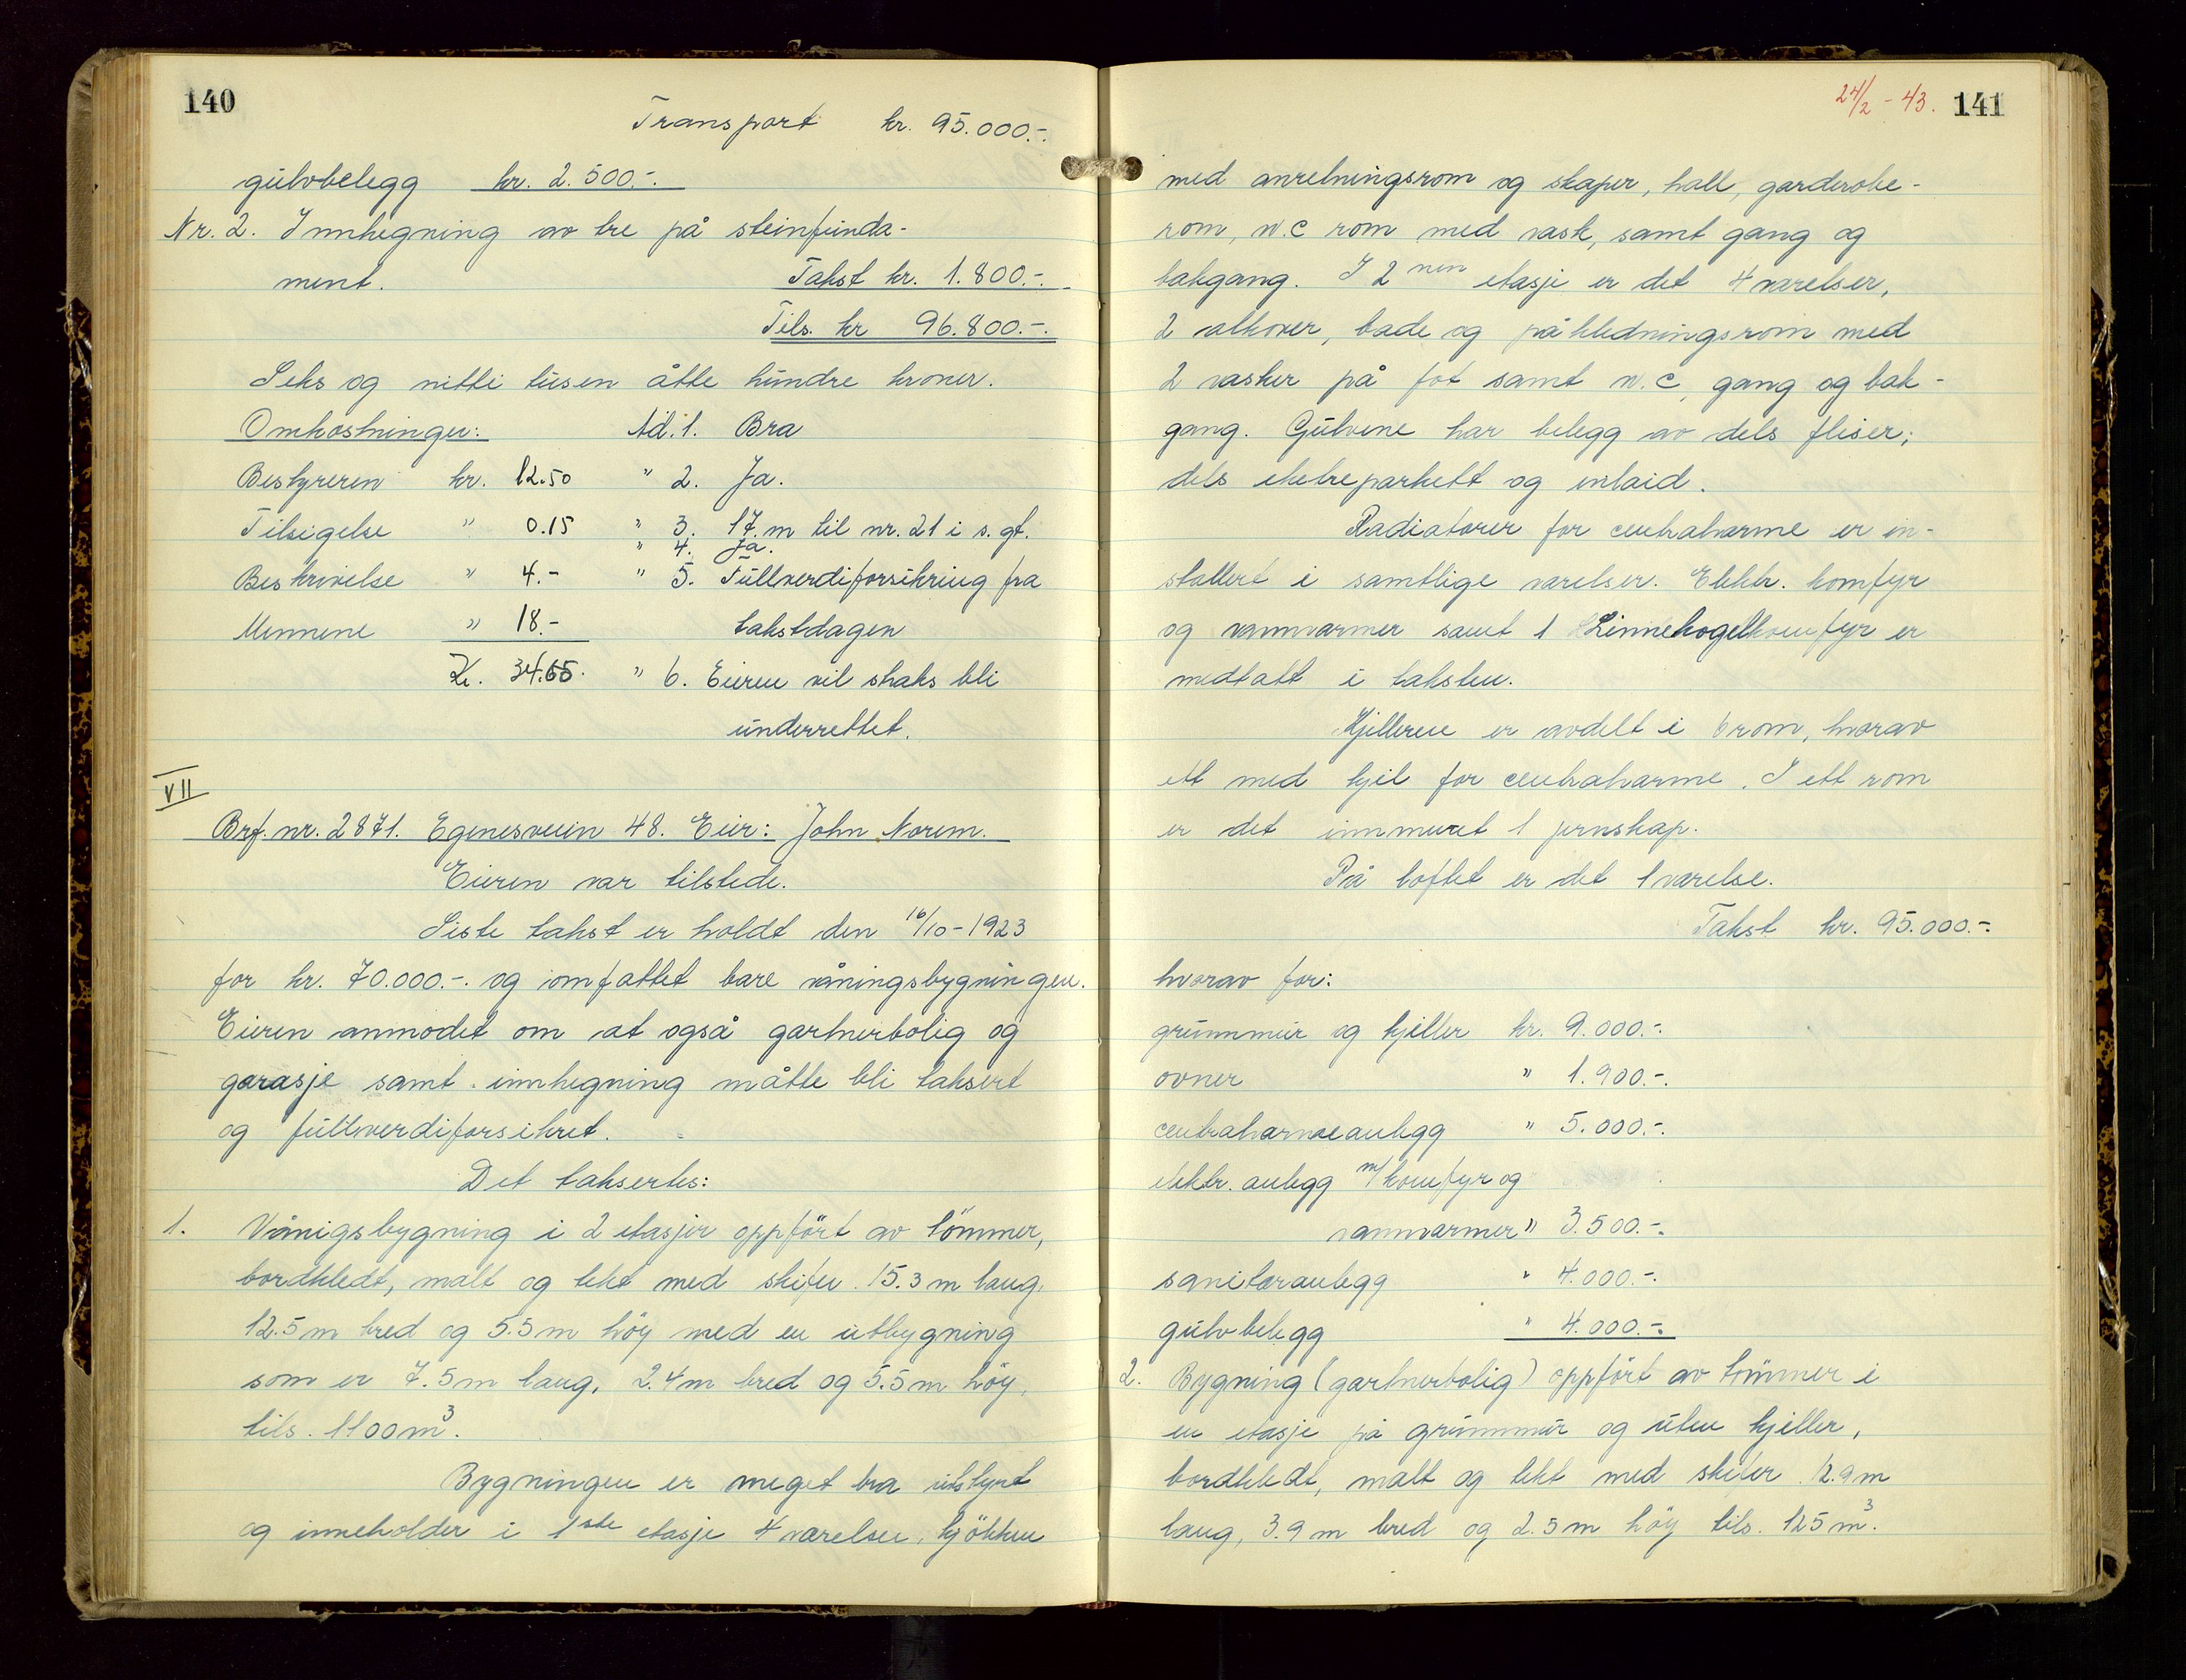 140
Transport kr. 95.000.-.
gulvbelegg kr. 2.500.-.
Nr. 2. Innhegning av tre på steinfunda-
ment. Takst kr. 1.800.-.
Tils. kr 96.800.-.
Seks og nitti tusen åtte hundre kroner.
Omkostninger: Ad. 1. Bra
Bestyreren kr. 12.50 " 2. Ja.
Tilsigelse " 0.15 " 3. 17 m til nr. 21 i s. gt.
" 4. Ja.
Beskrivelse " 4.- " 5. Fullverdiforsikring fra
Mennene " 18.- takstdagen
Kr. 34.65. " 6. Eieren vil straks bli
underrettet.
VII
Brf. nr. 2871. Egenesveien 48. Eier: John Norem.
Eieren var tilstede.
Siste takst er holdt den 16/10-1923
for kr. 70.000.-. og omfattet bare våningsbygningen.
Eieren anmodet om at også gartnerbolig og
garasje samt innhegning måtte bli taksert
og fullverdiforsikret.
Det taksertes:
1. Vånigsbygning i 2 etasjer oppført av tömmer,
bordkledt, malt og tekt med skifer. 15.3 m lang,
12.5 m bred og 5.5 m höy med en utbygning
som er 7.5 m lang, 2.4 m bred og 5.5 m höy,
tils. 1100 m³.
Bygningen er meget bra utstyrt
og inneholder i 1ste etasje 4 værelser, kjökken
24/2 - 43. 141
med anretningsrom og skaper, hall, garderobe-
rom, w.c rom med vask, samt gang og
bakgang. I 2nen etasje er det 4 værelser,
2 alkover, bade og påkledningsrom med
2 vasker på fot samt w.c, gang og bak-
gang. Gulvene har belegg av dels fliser,
dels eketreparkett og inlaid.
Radiatorer for centralvarme er in-
stallert i samtlige værelser. Elektr. komfyr
og vannvarmer samt 1 Linnekogelkomfyr er
medtatt i taksten.
Kjelleren er avdelt i 6 rom, hvorav
ett med kjel for centralvarme. I ett rom
er det innmuret 1 jernskap.
På loftet er det 1 værelse.
Takst kr. 95.000.-.
hvorav for:
grunnmur og kjeller kr. 9.000.-.
ovner " 1.900.-.
centralvarmeanlegg " 5.000.-.
elektr. anlegg m/ komfyr og
vannvarmer " 3.500.-.
sanitæranlegg " 4.000.-.
gulvbelegg " 4.000.-.
2. Bygning (gartnerbolig) oppført av tömmer i
en etasje på grunnmur og uten kjeller,
bordkledt, malt og tekt med skifer. 12.9 m
lang, 3.9 m bred og 2.5 m höy tils. 125 m³.